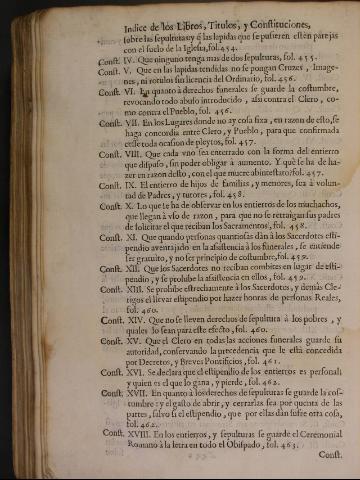 Indice de los Libros, Titulos, y Constituciones,
sobre las sepulturas y q̃ las lapidas que se pusieren estèn parejas
con el suelo de la Iglesia, fol. 454.
Const. IV. Que ninguno tenga mas de dos sepulturas, fol. 455.
Const. V. Que en las lapidas tendidas no se pongan Cruzes, Image-
nes, ni rotulos sin licencia del Ordinario, fol. 456.
Const. VI. En quanto à derechos funerales se guarde la costumbre,
revocando todo abuso introducido, assi contra el Clero, co-
mo contra el Pueblo, fol. 456.
Const. VII. En los Lugares donde no ay cosa fixa, en razon de esto, se
haga concordia entre Clero, y Pueblo, para que confirmada
cesse toda ocasion de pleytos, fol. 457.
Const. VIII. Que cada vno sea enterrado con la forma del entierro
que dispuso, sin poder obligar à aumento. Y què se ha de ha-
zer en razon desto, con el que muere abintestato? fol. 457.
Const. IX. El entierro de hijos de familias, y menores, sea à volun-
tad de Padres, y tutores, fol. 458.
Const. X. Lo que se ha de observar en los entierros de los muchachos,
que llegan à vso de razon, para que no se retraigan sus padres
de solicitar el que reciban los Sacramentos, fol. 458.
Const. XI. Que quando personas quantiosas dàn à los Sacerdotes esti-
pendio aventajado en la assistencia à los funerales, se entiende
ser gratuito, y no ser principio de costumbre, fol. 459.
Const. XII. Que los Sacerdotes no reciban combites en lugar de esti-
pendio, y se prohibe la assistencia en ellos, fol. 459.
Const. XIII. Se prohibe estrechamente à los Sacerdotes, y demàs Cle-
rigos el llevar estipendio por hazer honras de personas Reales,
fol. 460.
Const. XIV. Que no se lleven derechos de sepultura à los pobres, y
quales lo sean para este efecto, fol. 460.
Const. XV. Que el Clero en todas las acciones funerales guarde su
autoridad, conservando la precedencia que le està concedida
por Decretos, y Breves Pontificios, fol. 461.
Const. XVI. Se declara que el estipendio de los entierros es personal;
y quien es el que lo gana, y pierde, fol. 462.
Const. XVII. En quanto à los derechos de sepultura se guarde la cos-
tumbre: y el gasto de abrir, y cerrarlas sea por quenta de las
partes, salvo si el estipendio, que por ellas dàn sufre otra cosa,
fol. 462.
Const. XVIII. En los entierros, y sepulturas se guarde el Ceremonial
Romano à la letra en todo el Obispado, fol. 463.
Const.